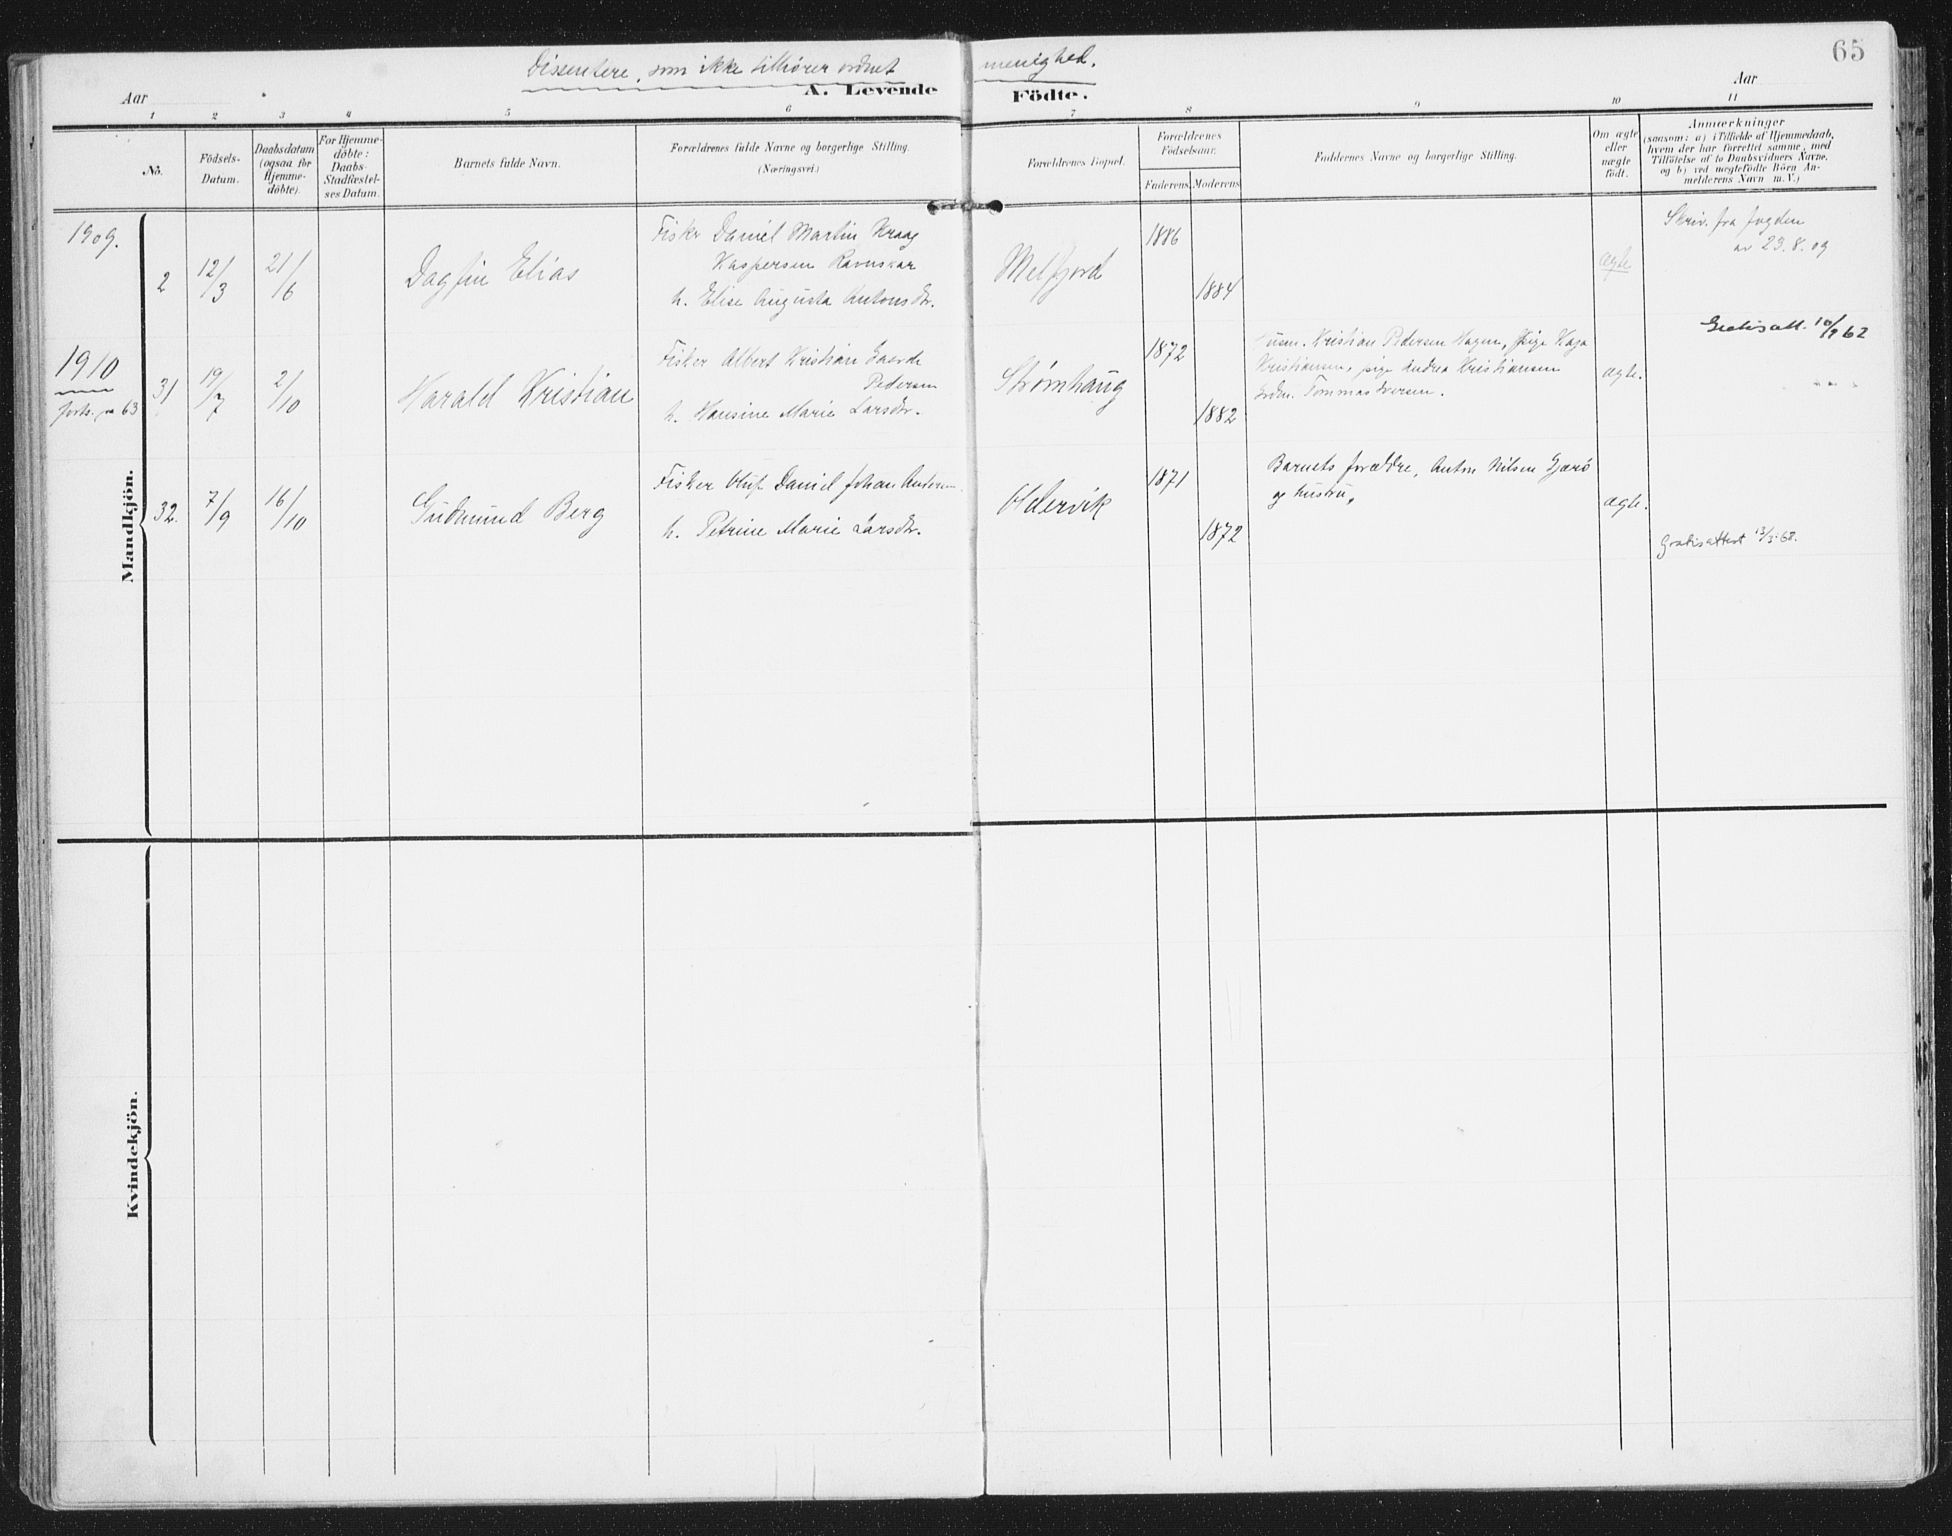 65
Dissentere, som ikke tilhører ordnet menighed.
Aar
A. Levende Födte.
Aar
1 2 3 4 5 6 7 8 9 10 11
No.
Födsels-
Datum.
Daabsdatum
(ogsaa for
Hjemme-
döbte).
For Hjemme-
döbte:
Daabs
Stadfæstel-
ses Datum.
Barnets fulde Navn.
Forældrenes fulde Navne og borgerlige Stilling.
(Næringsvei.)
Forældrenes Bopæl.
Forældrenes
Födselsaar.
Faderens Moderens
Faddernes Navne og borgerlige Stilling.
Om ægte
eller
uægte
födt.
Anmærkninger
(saasom: a) i Tilfælde af Hjemmedaab,
hvem der har forrettet samme, med
Tilföielse af to Daabsvidners Navne,
og b) ved uægtefödte Börn An-
melderens Navn m. V.)
Mandkjön.
1909.
2 12/3 21/6
Dagfin Elias
Fisker Daniel Martin Kraag
Kaspersen
h. Elise Augusta Antonsdr.
Melfjord
1886
1884
ægte
Skriv. fra fogden
av 23.8.09
1910
forts. 63
31 19/7 2/10
Harald Kristian
Fisker Albert Kristian
Pedersen
h. Hansine Marie Larsdr.
Strømhaug
1872
1882
Kristian Pedersen Hagen, pige Kaja
Kristiansen, pige Andrea Kristiansen
ægte.
Gratisatt. 62
32. 7/9 16/10
Gudmund Berg
Fisker Daniel Johan
h. Petrine Marie Larsdr.
1871
1872
Barnets forældre, Anton Nilsen
og hustru,
ægte.
Gratisattest 13/3-68.
Kvindekjön.